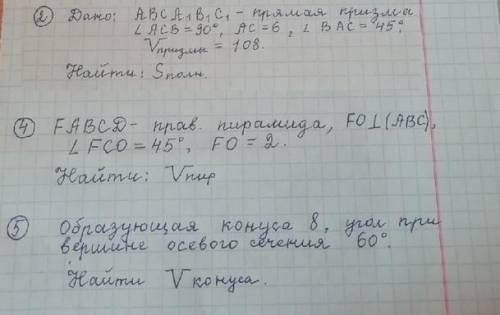 ② Дано: ABCA₁B₁C₁ - прямая призма
∠ACB = 90°, AC = 6, ∠BAC = 45°.
Vпризмы = 108.
Найти: Sполн.
④ FABCD - прав. пирамида, FO⊥(ABC),
∠FCO = 45°, FO = 2.
Найти: Vпир
⑤ Образующая конуса 8, угол при
вершине осевого сечения 60°.
Найти Vконуса.